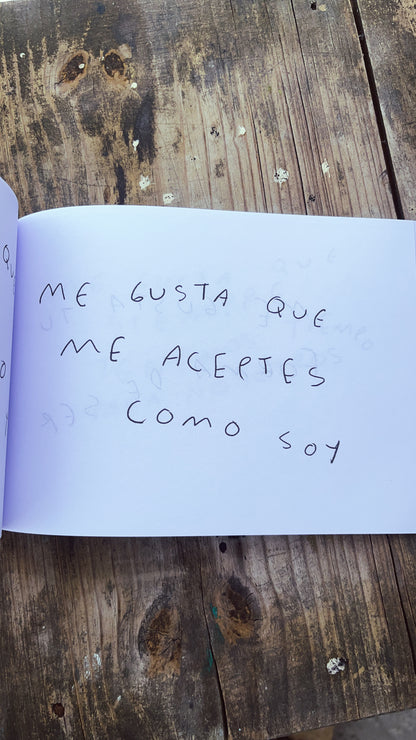 ME GUSTA QUE
ME ACEPTES
COMO SOY